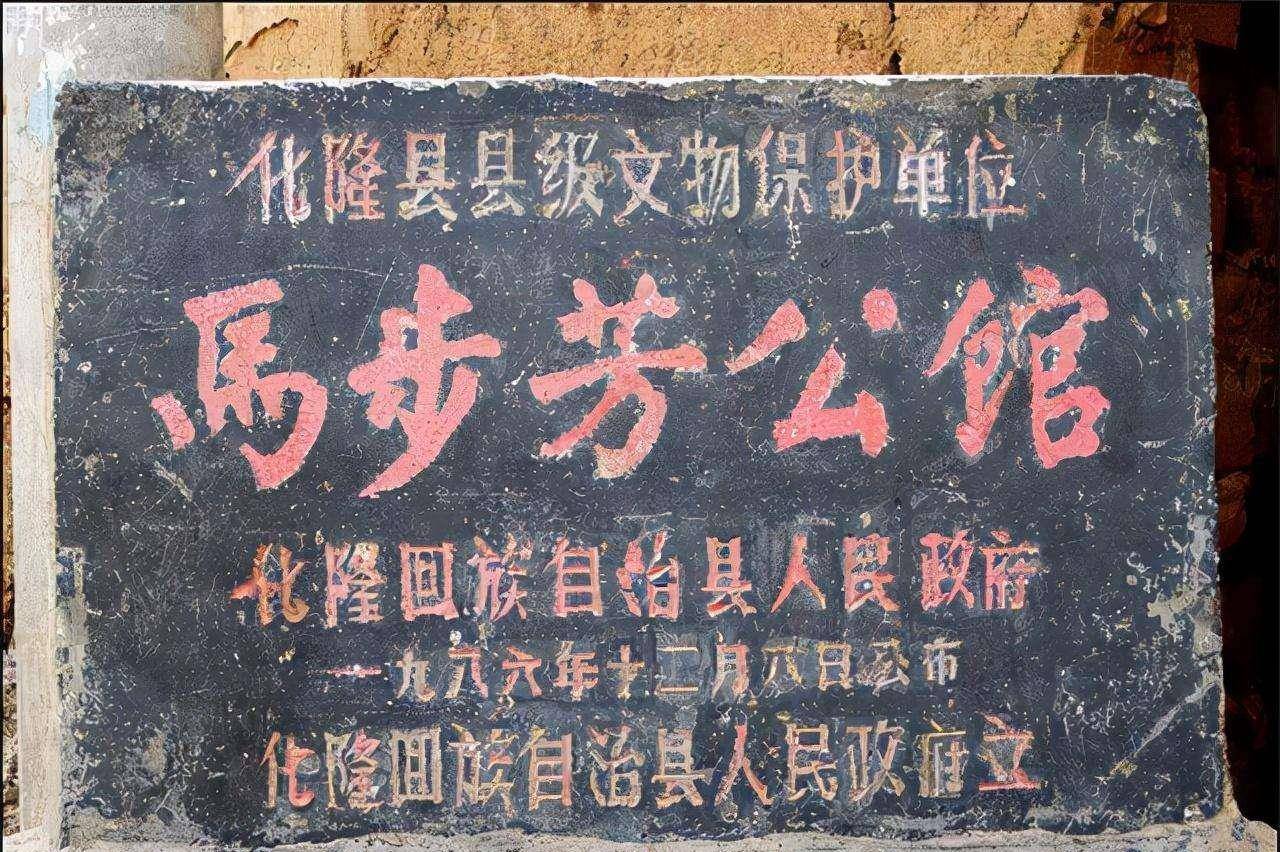 化隆县县级文物保护单位
馬步芳公館
化隆回族自治县人民政府
一九八六年十二月八日公布
化隆回族自治县人民政府立